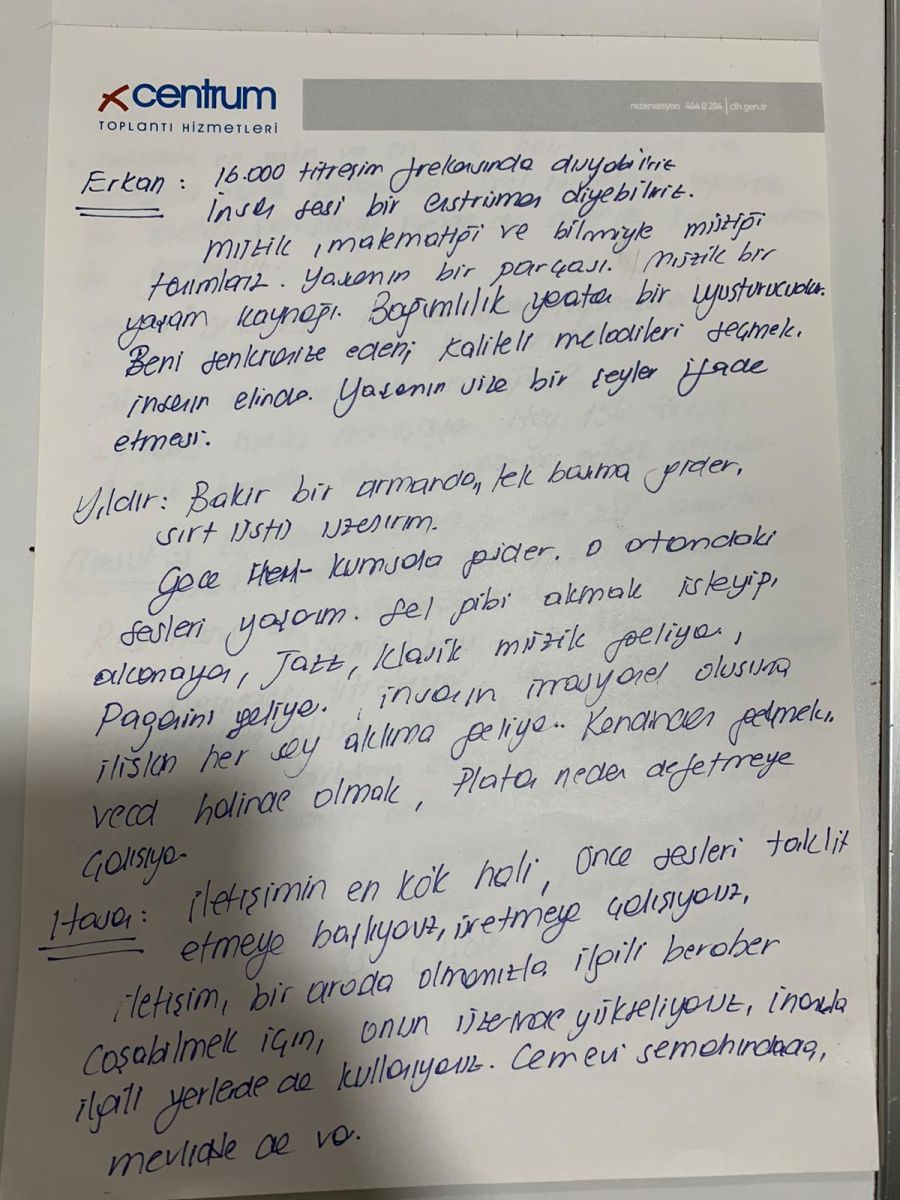 centrum
TOPLANTI HİZMETLERİ
rezervasyon 444 0 284 | cth.gen.tr
Erkan : 16.000 titreşim frekasında duyabiliriz
İnsan sesi bir enstrüman diyebiliriz.
Müzik, matematiği ve bilmiyle müziği
tanımlarız. Yaşamın bir parçası. Müzik bir
yaşam kaynağı. Bağımlılık yaratan bir uyuşturucudur.
Beni senkronize eden, kaliteli melodileri seçmek,
insanın elinde. Yaşamın size bir şeyler ifade
etmesi.
Yıldır: Bakir bir ormanda, tek başıma gider,
sırt üstü uzanırım.
Gece kumsala gider. O ortamdaki
sesleri yaşarım. Sel gibi akmak isteyip,
akamayan, Jazz, klasik müzik geliyor,
Paganini geliyor. insanın irrasyonel oluşuna
ilişkin her şey aklıma geliyor. Kendinden geçmek,
vecd halinde olmak, Platon neden defetmeye
çalışıyor.
iletişimin en kök hali, önce sesleri taklit
etmeye başlıyoruz, üretmeye çalışıyoruz,
iletişim, bir arada olmamızla ilgili beraber
coşabilmek için, onun üzerinde yükseliyoruz, inançla
ilgili yerlerde de kullanıyoruz. Cemevi semahındada,
mevlidde de var.